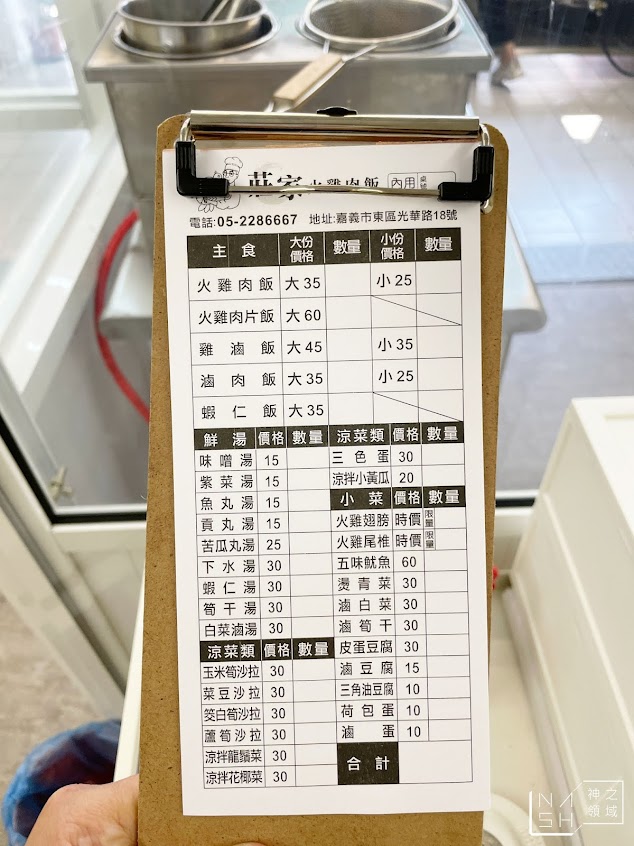 莊家火雞肉飯 內用
電話:05-2286667 地址:嘉義市東區光華路18號
主食 大份價格 數量 小份價格 數量
火雞肉飯 大35 小25
火雞肉片飯 大60
雞滷飯 大45 小35
滷肉飯 大35 小25
蝦仁飯 大35
鮮湯 價格 數量
味噌湯 15
紫菜湯 15
魚丸湯 15
貢丸湯 15
苦瓜丸湯 25
下水湯 30
蝦仁湯 30
筍干湯 30
白菜滷湯 30
涼菜類 價格 數量
玉米筍沙拉 30
菜豆沙拉 30
筊白筍沙拉 30
蘆筍沙拉 30
涼拌龍鬚菜 30
涼拌花椰菜 30
涼菜類 價格 數量
三色蛋 30
涼拌小黃瓜 20
小菜 價格 數量
火雞翅膀 時價 限量
火雞尾椎 時價 限量
五味魷魚 60
燙青菜 30
滷白菜 30
滷筍干 30
皮蛋豆腐 30
滷豆腐 15
三角油豆腐 10
荷包蛋 10
滷蛋 10
合計
NASH 神之領域